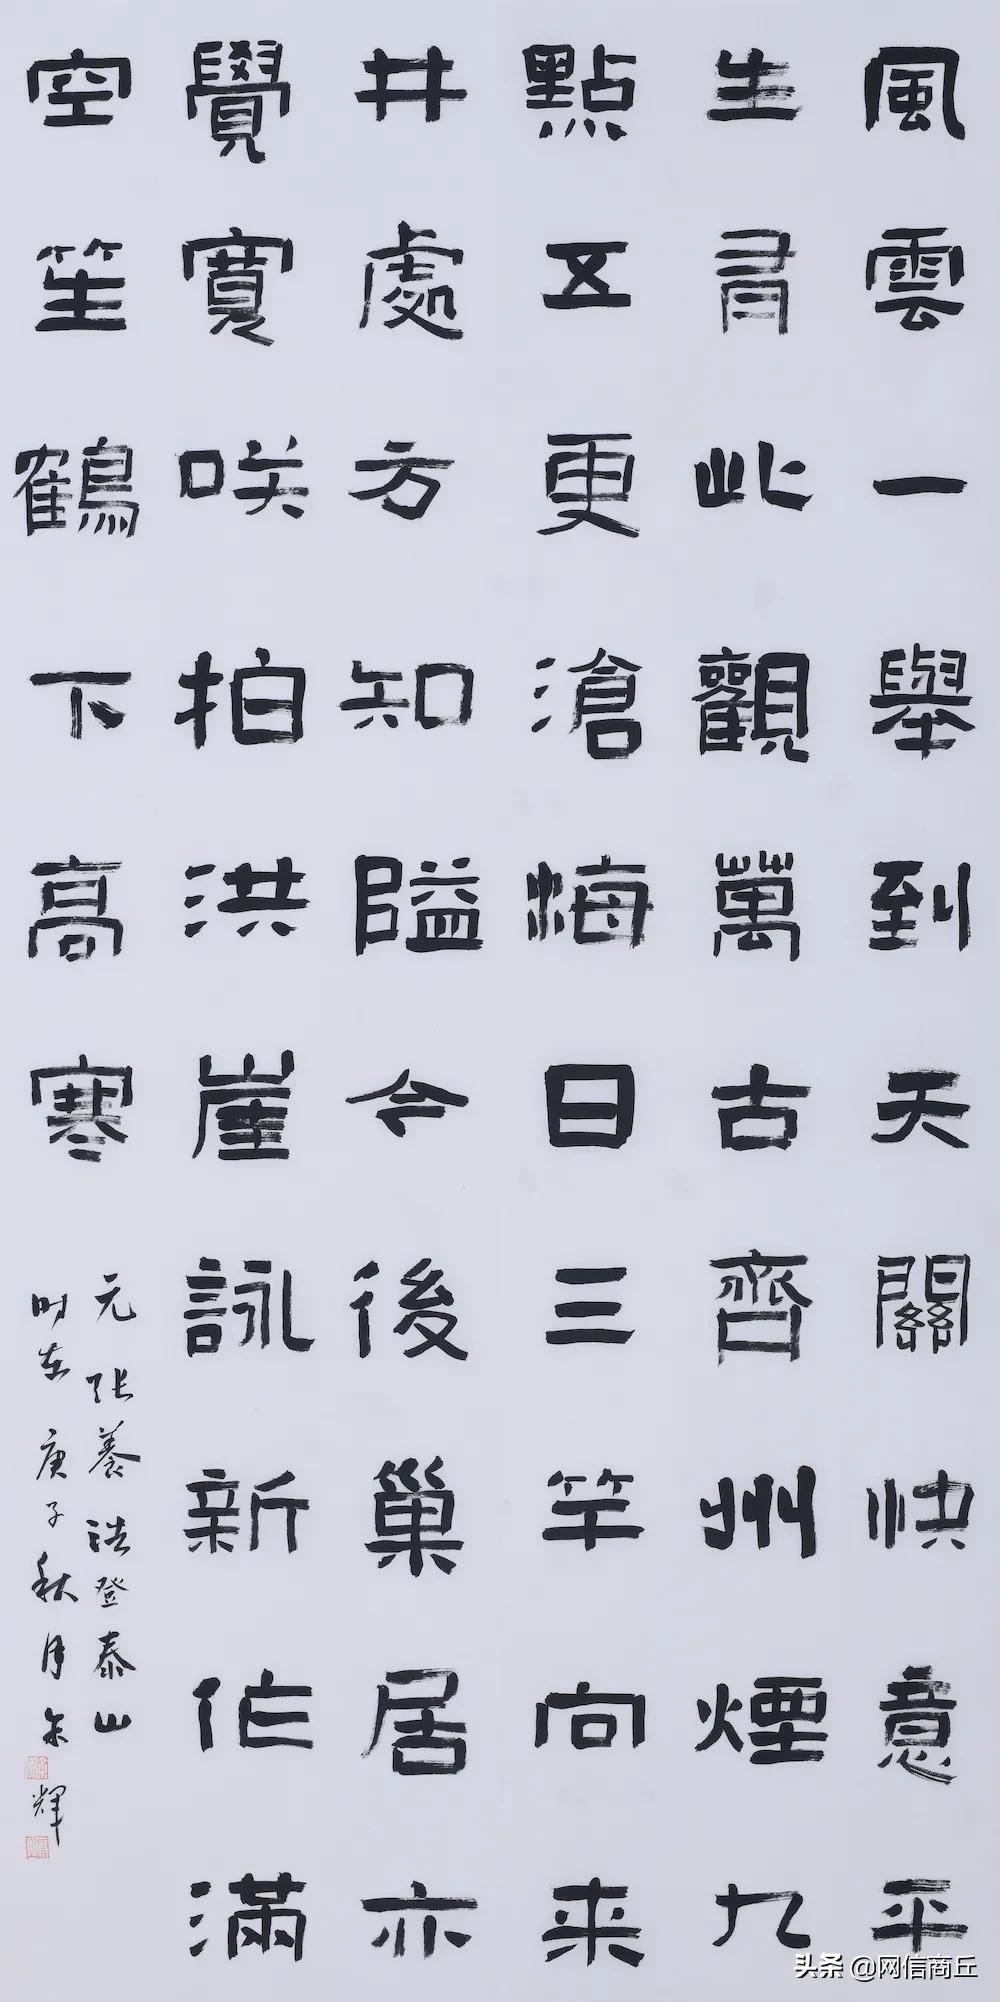 風雲一舉到天關快意平
生有此觀萬古齊州煙九
點五更滄海日三竿向来
井處方知隘今後巢居亦
覺寬咲拍洪崖詠新作滿
空笙鶴下高寒
元张養浩登泰山
时在庚子秋月輝
头条 @网信商丘